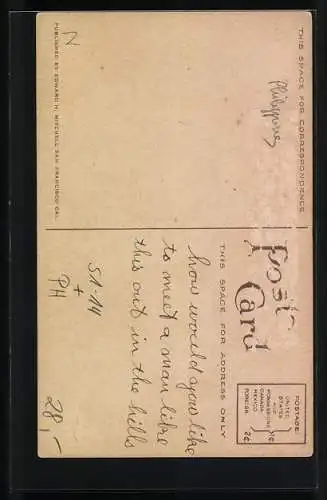 THIS SPACE FOR CORRESPONDENCE
Philippines
N
PUBLISHED BY EDWARD H. MITCHELL SAN FRANCISCO CAL.
Post
Card
THIS SPACE FOR ADDRESS ONLY
POSTAGE:
UNITED
STATES
AND
POSSESSIONS
CANADA
MEXICO
1¢
FOREIGN 2¢
how would you like
to meet a man like
this out in the hills
51-14
+
PH
28,-